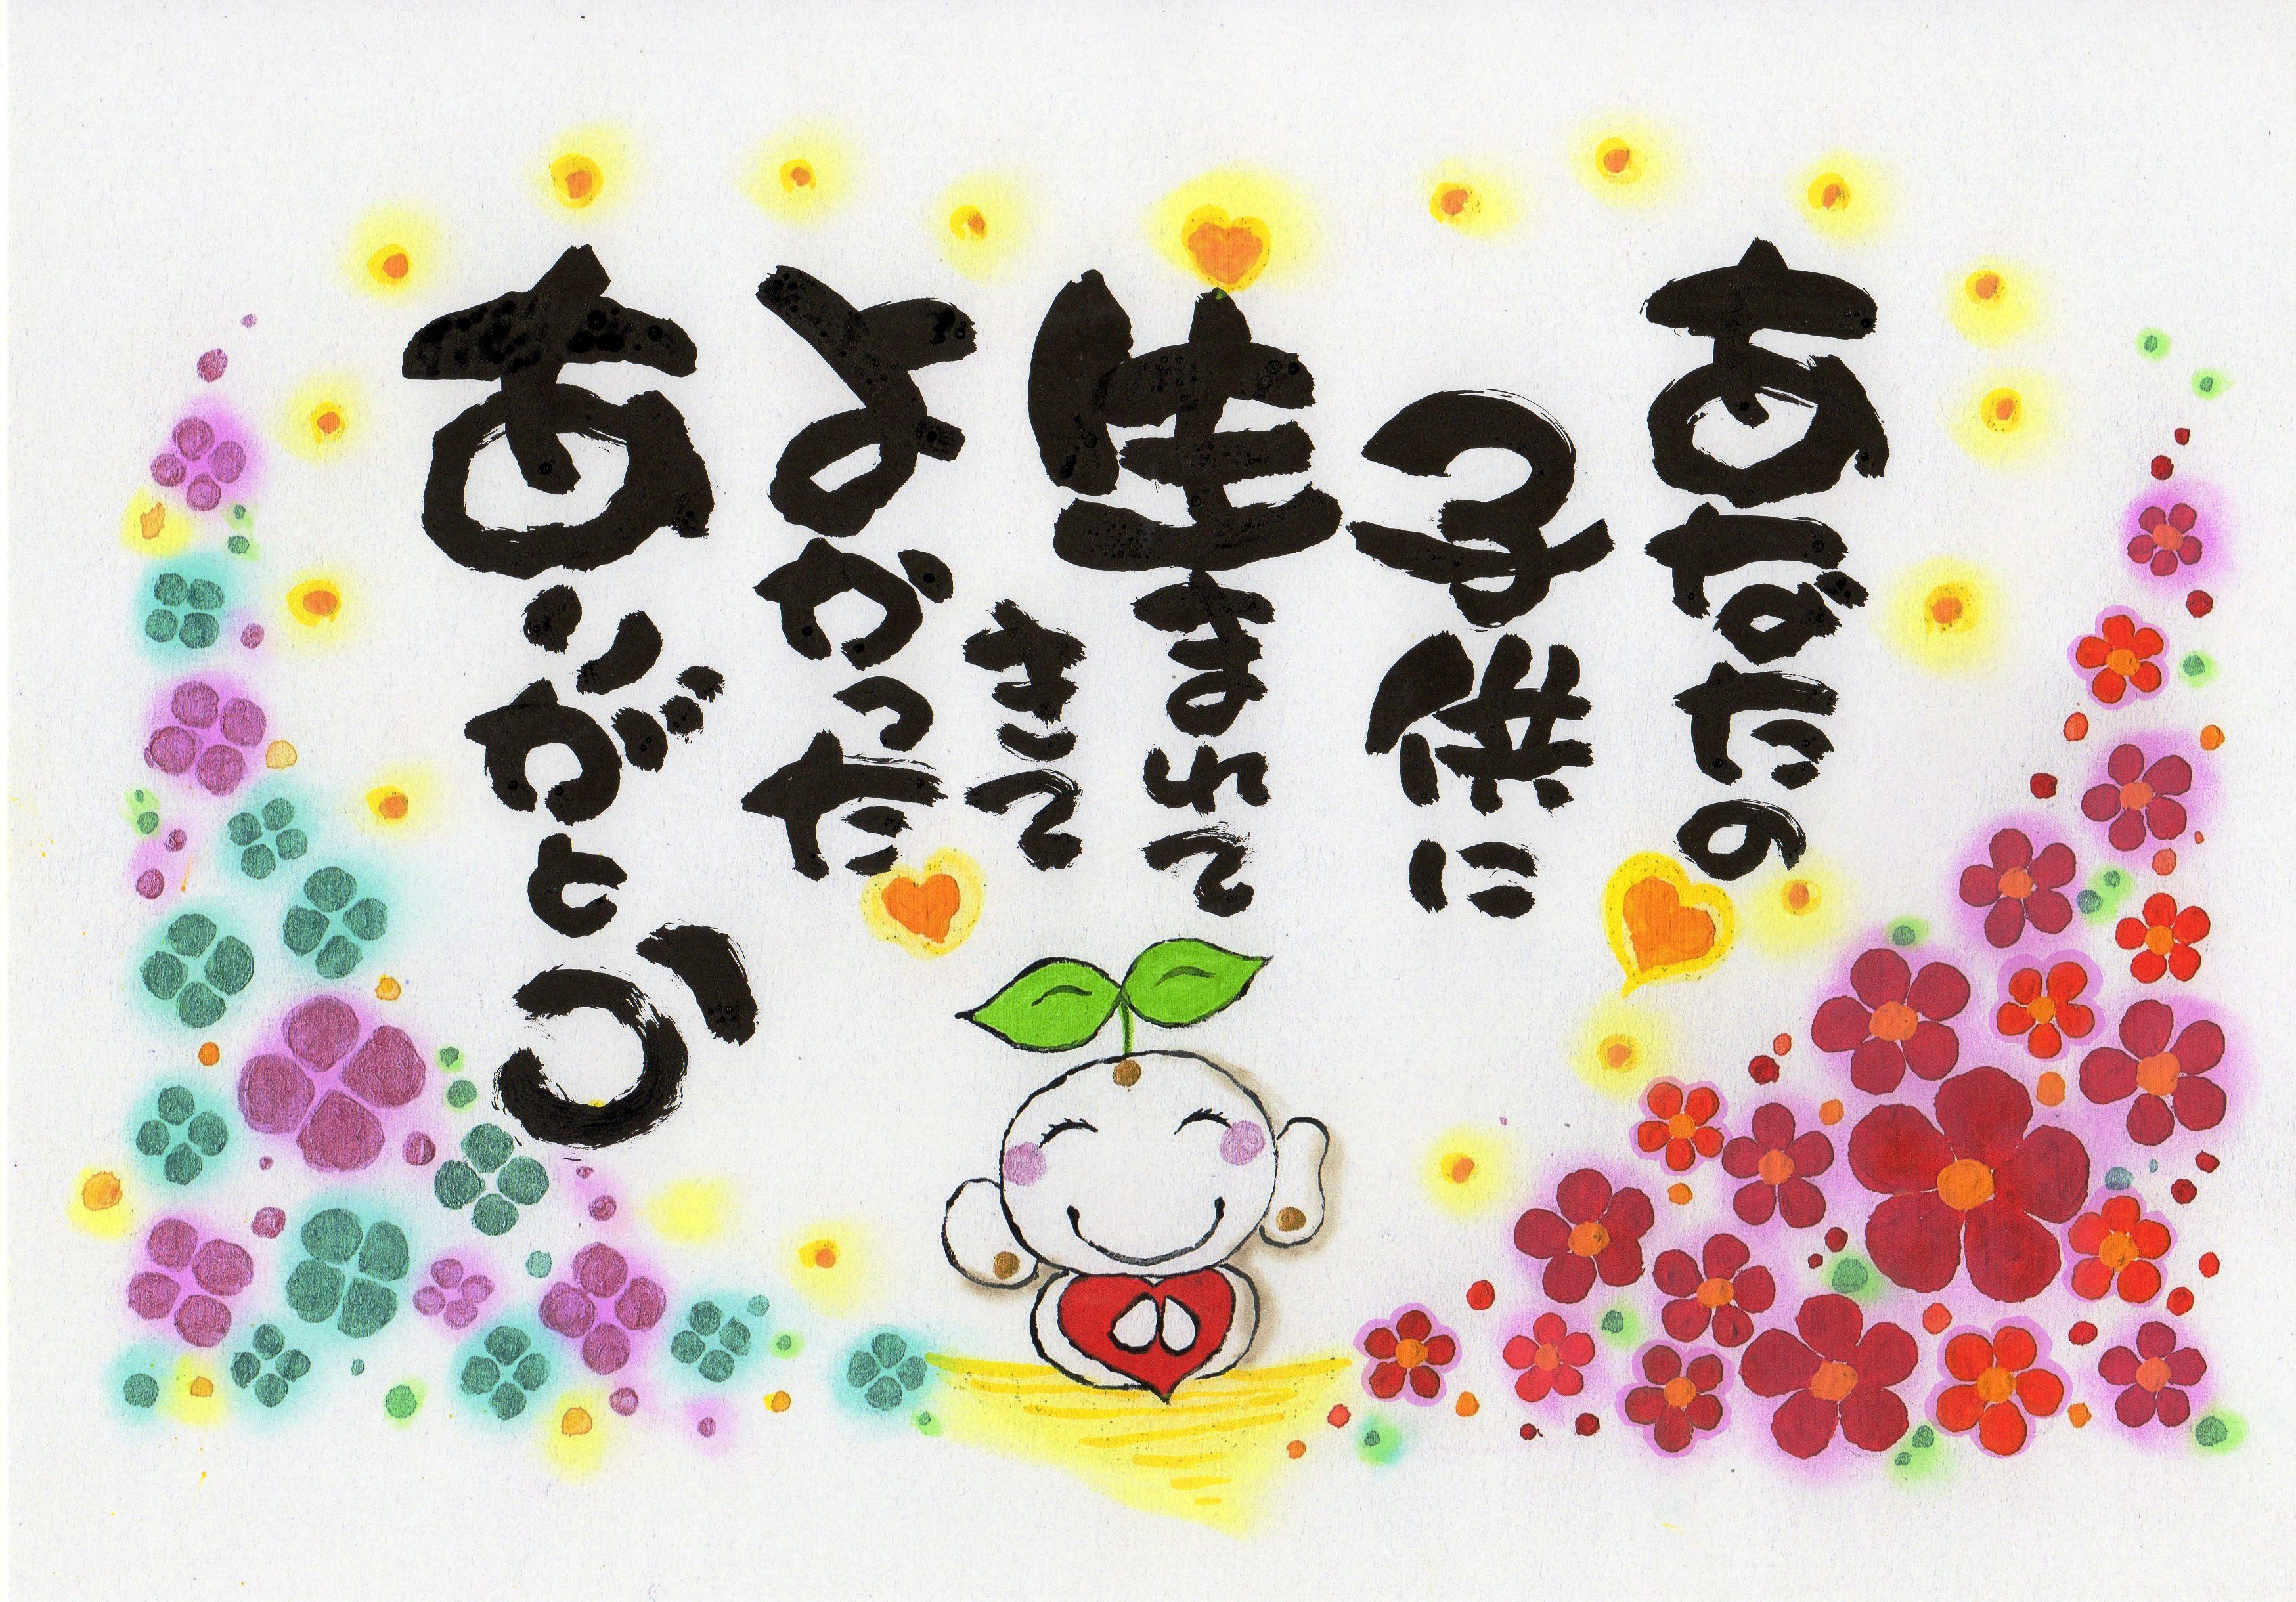 あなたの
子供に
生まれて
きて
よかった
ありがとう